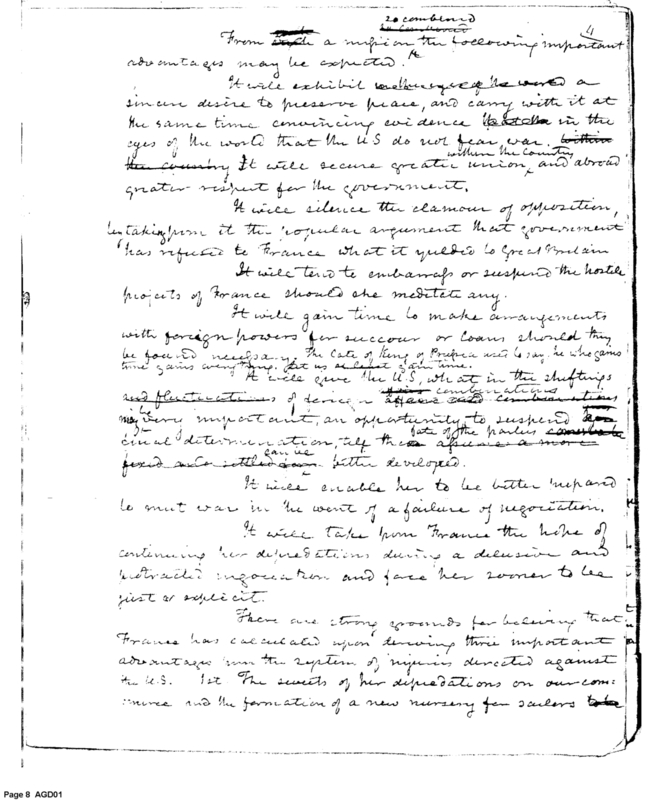 so combined
4
From a mission the following important
advantages may be expected.
It will exhibit a
sincere desire to preserve peace, and carry with it at
the same time convincing evidence in the
eyes of the world that the U S do not fear war.
within the Country
the country It will secure greater union, and abroad
greater respect for the government.
It will silence the clamour of opposition,
by taking from it the popular argument that government
has refused to France what it yielded to Great Britain
It will tend to embarrass or suspend the hostile
projects of France should she meditate any.
It will gain time to make arrangements
with foreign powers for succour or loans should they
be found necessary. The late King of Prussia used to say, he who gains
time gains every thing. Let us at least gain time.
It will give the U.S, what in the shiftings
combinations
and fluctuations of foreign affairs and combinations
may be very important, an opportunity to suspend
fate of the parties
final determination, till the assumes a more
can be
fixed and settled better developed.
It will enable her to be better prepared
to meet war in the event of a failure of negociation.
It will take from France the hope of
continuing her depredations during a delusive and
protracted negociation and force her sooner to be
just or explicit.
There are strong grounds for believing that
France has calculated upon deriving three important
advantages from the system of injuries directed against
the U.S. 1st The sweets of her depredations on our com:
:merce and the formation of a new nursery for sailors
Page 8 AGD01